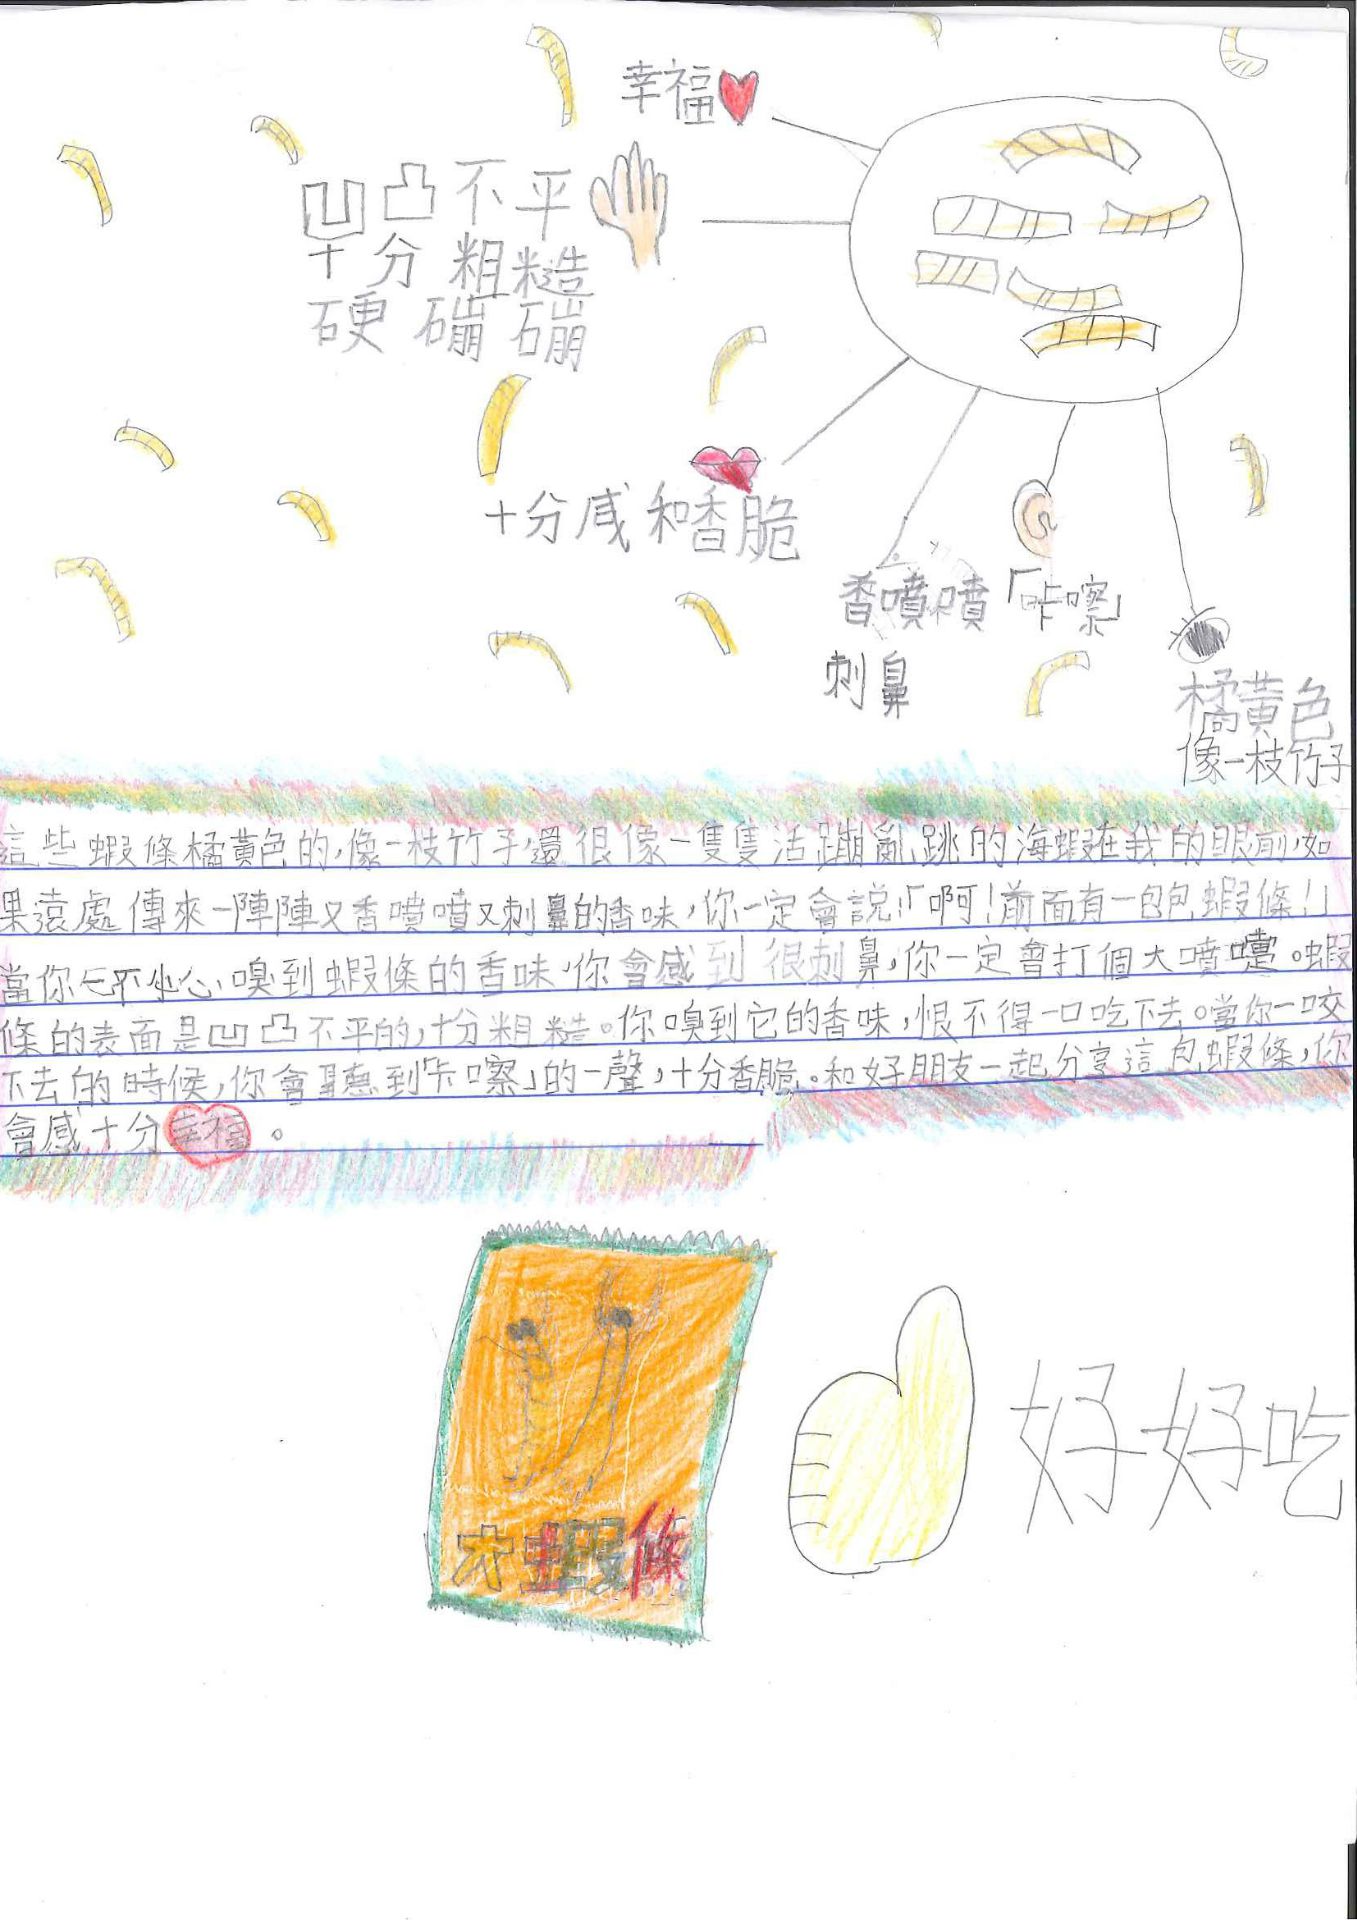 幸福
凹凸不平
十分粗糙
硬磞磞
十分咸和香脆
香噴噴
刺鼻
「咔嚓」
橘黃色
像一枝竹子
這些蝦條橘黃色的,像一枝竹子,還很像一隻隻活蹦亂跳的海蝦在我的眼前,如
果遠處傳來一陣陣又香噴噴又刺鼻的香味,你一定會説:「啊!前面有一包包蝦條!」
當你一不小心嗅到蝦條的香味,你會感到很刺鼻,你一定會打個大噴嚏。蝦
條的表面是凹凸不平的,十分粗糙。你嗅到它的香味,恨不得一口吃下去。當你一咬
下去的時候,你會聽到「咔嚓」的一聲,十分香脆。和好朋友一起分享這包蝦條,你
會感十分幸福。
大蝦條
好好吃